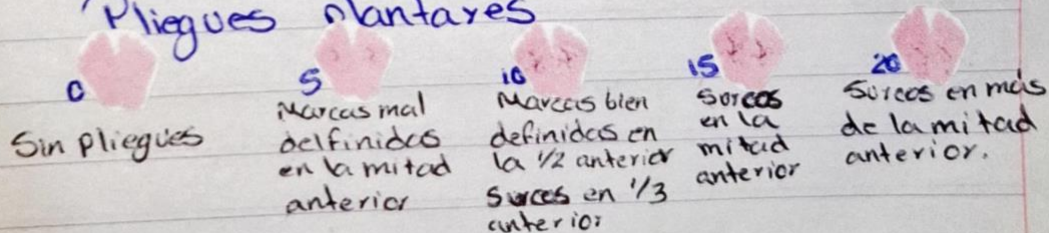 Pliegues plantares
0
Sin pliegues
5
Marcas mal
delfinidas
en la mitad
anterior
10
Marcas bien
definidas en
la 1/2 anterior
Surcos en 1/3
anterior
15
Surcos
en la
mitad
anterior
20
Surcos en más
de la mitad
anterior.